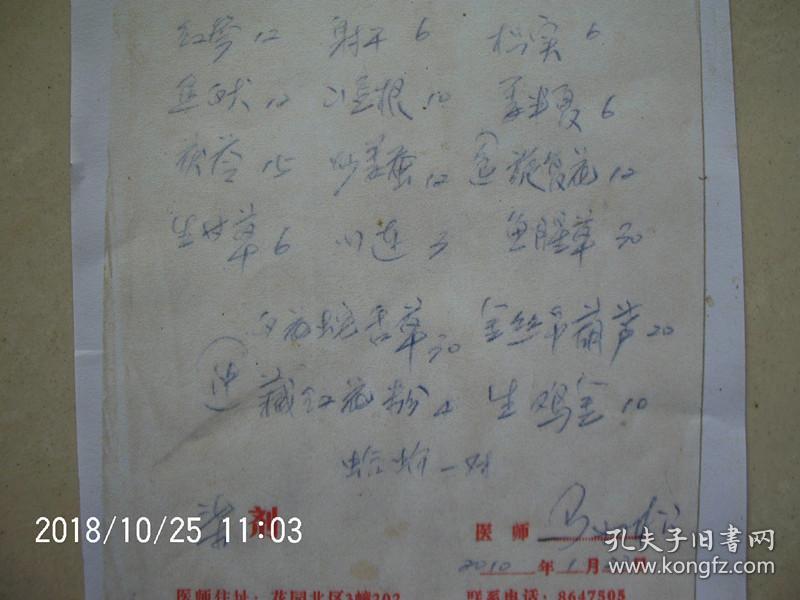 红参12 射干6 枳实6
焦术12 山豆根10 姜半夏6
茯苓15 炒姜蚕12 包旋复花12
生甘草6 川连3 鱼腥草30
白花蛇舌草30 金丝吊葫芦20
藏红花粉4 生鸡金10
蛤蚧一对
剂
医师
2010年1月
医师住址：花园北区3幢202 联系电话：8647505
2018/10/25 11:03
孔夫子旧书网
www.kongfz.com